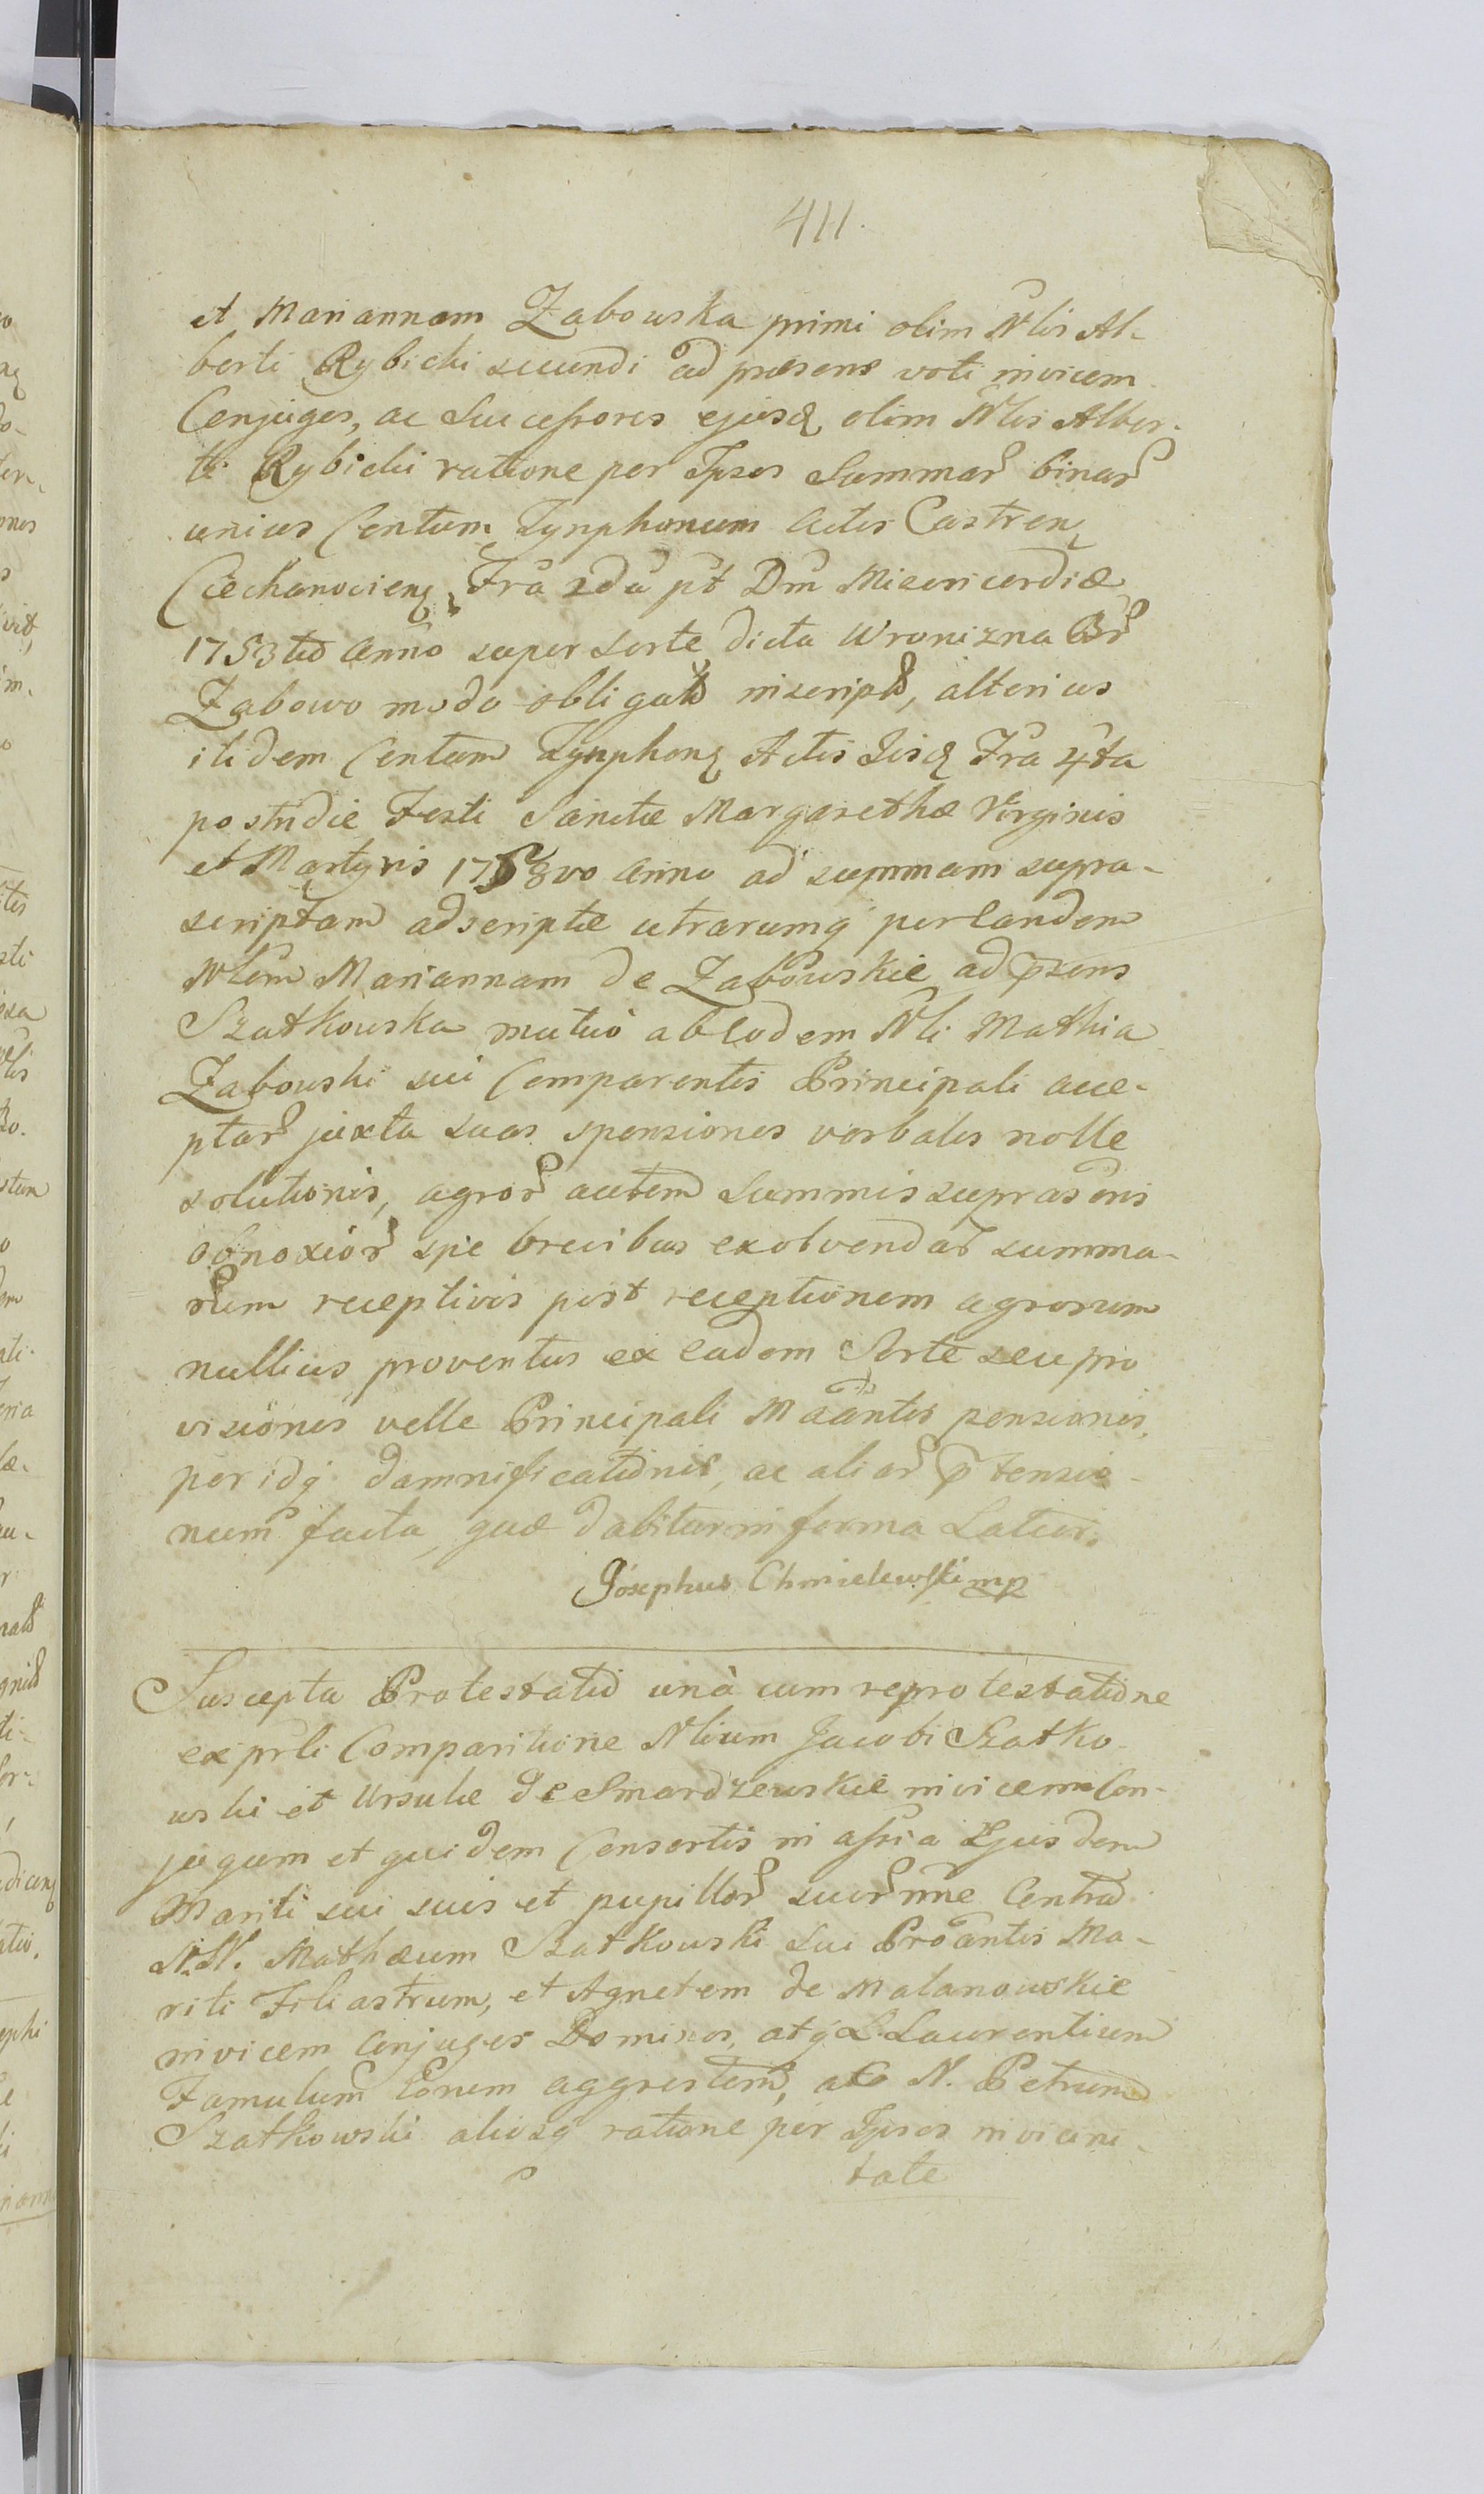 411.
et Mariannam Zabowska primi olim Nlis Al-
berti Rybicki secundi ad præsens voti invicem
Conjuges, ac Successores ejusq olim Nlis Alber-
ti Rybicki ratione per Ipsos Summar binar
unius Centum Tynphonum Actis Castren
Ciechanocien Fra 2da pt Dm Misericordiæ
1753tio Anno super sorte dicta Wronizna Br
Zabowo modo obligato inscript, alterius
itidem Centum Tynphon Actis Iisq Fra 4ta
postridie Festi Sanctæ Margarethæ Virginis
et Martyris 1758vo Anno ad summam supra-
scriptam adscriptæ utrarumq per Eandem
Nlem Mariannam de Zabowskie ad p̄sens
Szatkowska mutuo ab Eodem Nli Mathia
Zabowski sui Comparentis Principali acce-
ptar juxta suas sponsiones verbales nolle
solutionis, agror autem Summis suprascris
obnoxior spe brevibus exolvendar summa-
rum receptivis post receptionem agrorum
nullius proventus ex eadem Sorte seu pro
visionis velle Principali Mãntis pensionis,
per idq damnificationis, ac aliar p̄tensio-
num facta, quæ dabitur in forma Latior.
Josephus Chmielewski mp
Suscepta Protestatio unà cum reprotestatione
ex prli Comparitione Nlium Jacobi Szatko-
wski et Ursulæ de Smardzewskie invicem Con-
jugum et quidem Consortis in assia Ejusdem
Mariti sui suis et pupillor suor nne Contra
N.N. Mathæum Szatkowski sui Proantis Ma-
riti Filiastrum, et Agnetem de Malanowskie
invicem Conjuges Dominos, atq L. Laurentium
Famulum Eorum aggrestem, ac N. Petrum
Szatkowski aliosq ratione per Ipsos in vicini-
tate